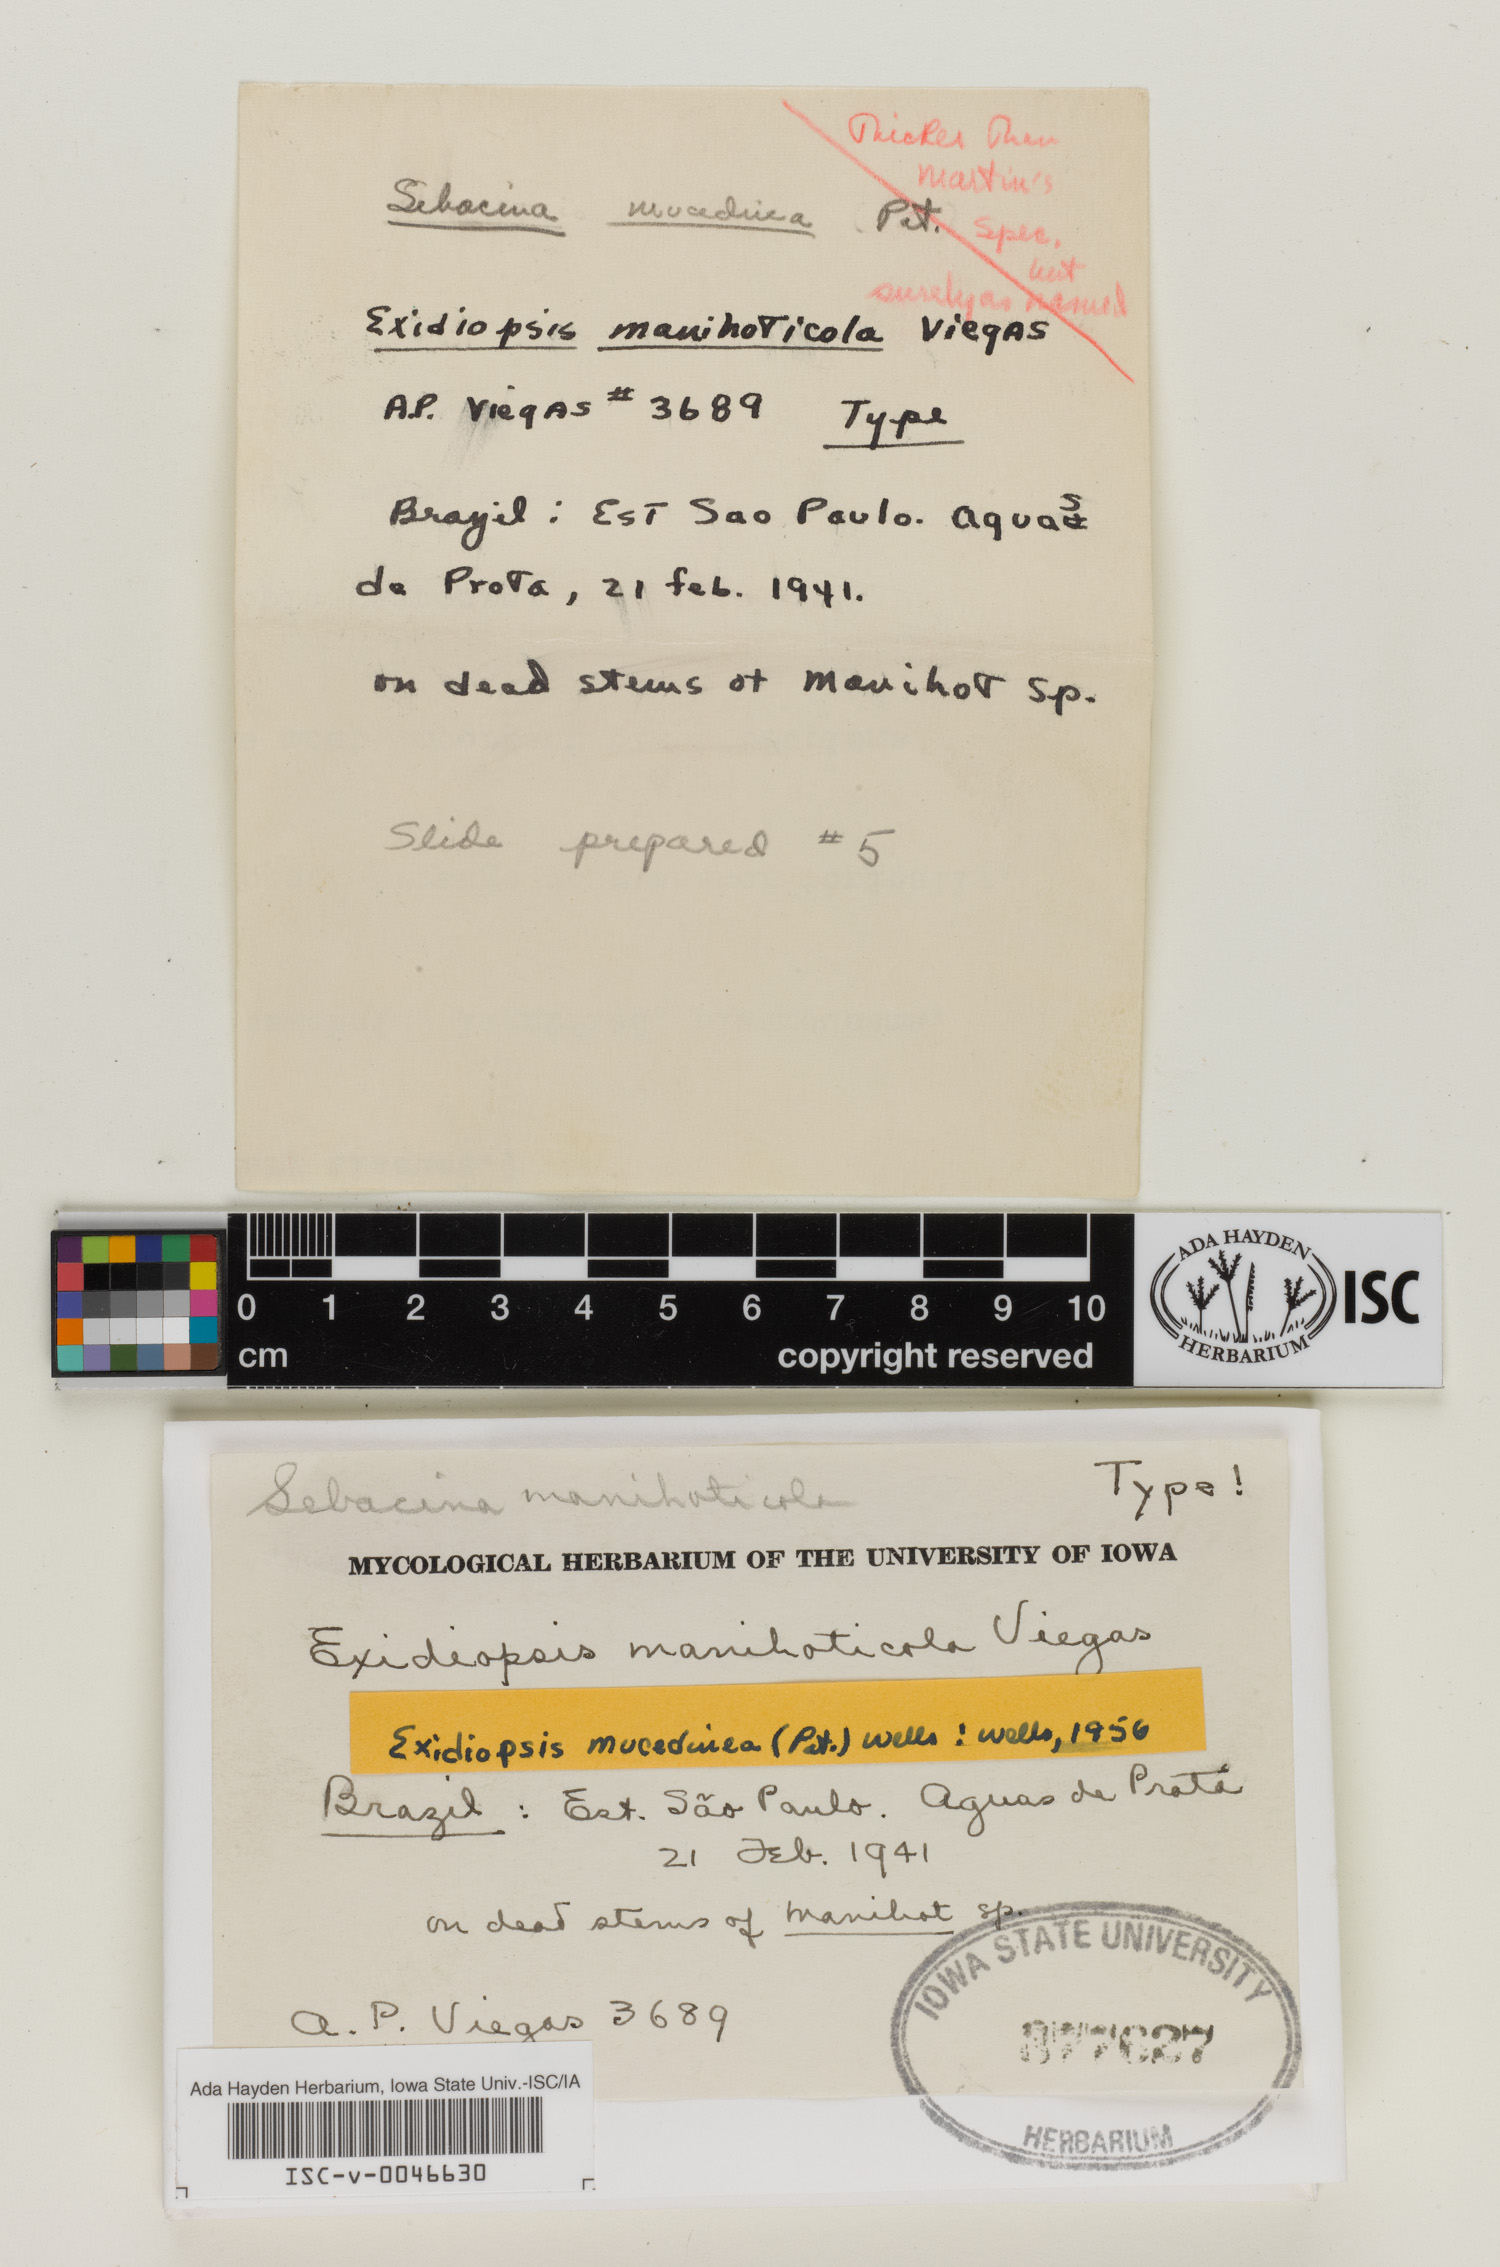 Thicker Than
Martin's
Spec.
but
surely as named
Sebacina mucedinea Pat.
Exidiopsis manihoticola Viegas
A.P. Viegas # 3689 Type
Brazil : Est Sao Paulo. Aguas
da Prota, 21 feb. 1941.
on dead stems of Manihot sp.
Slide prepared #5
0 1 2 3 4 5 6 7 8 9 10
cm copyright reserved
ADA HAYDEN
HERBARIUM
ISC
Sebacina manihoticola Type!
MYCOLOGICAL HERBARIUM OF THE UNIVERSITY OF IOWA
Exidiopsis manihoticola Viegas
Exidiopsis mucedinea (Pat.) Wells ! Wells, 1956
Brazil : Est. São Paulo. Aguas da Prata
21 Feb. 1941
on dead stems of Manihot sp.
A. P. Viegas 3689
IOWA STATE UNIVERSITY
HERBARIUM
Ada Hayden Herbarium, Iowa State Univ.-ISC/IA
ISC-v-0046630